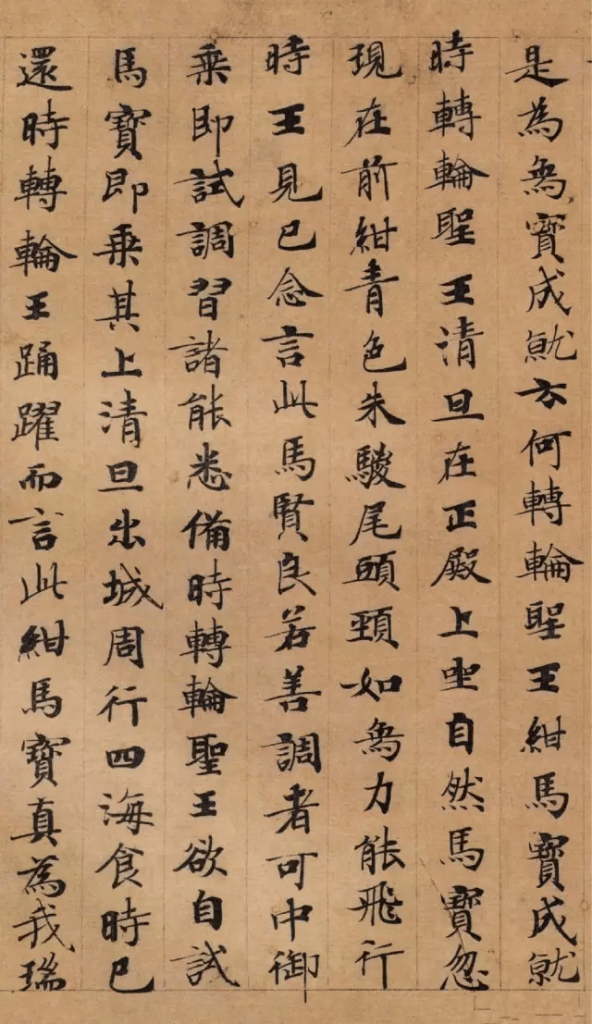 是為象寶成就云何轉輪聖王紺馬寶成就
時轉輪聖王清旦在正殿上坐自然馬寶忽
現在前紺青色朱騣尾頭頚如象力能飛行
時王見已念言此馬賢良若善調者可中御
乘即試調習諸能悉備時轉輪聖王欲自試
馬寶即乘其上清旦出城周行四海食時已
還時轉輪王踊躍而言此紺馬寶真為我瑞